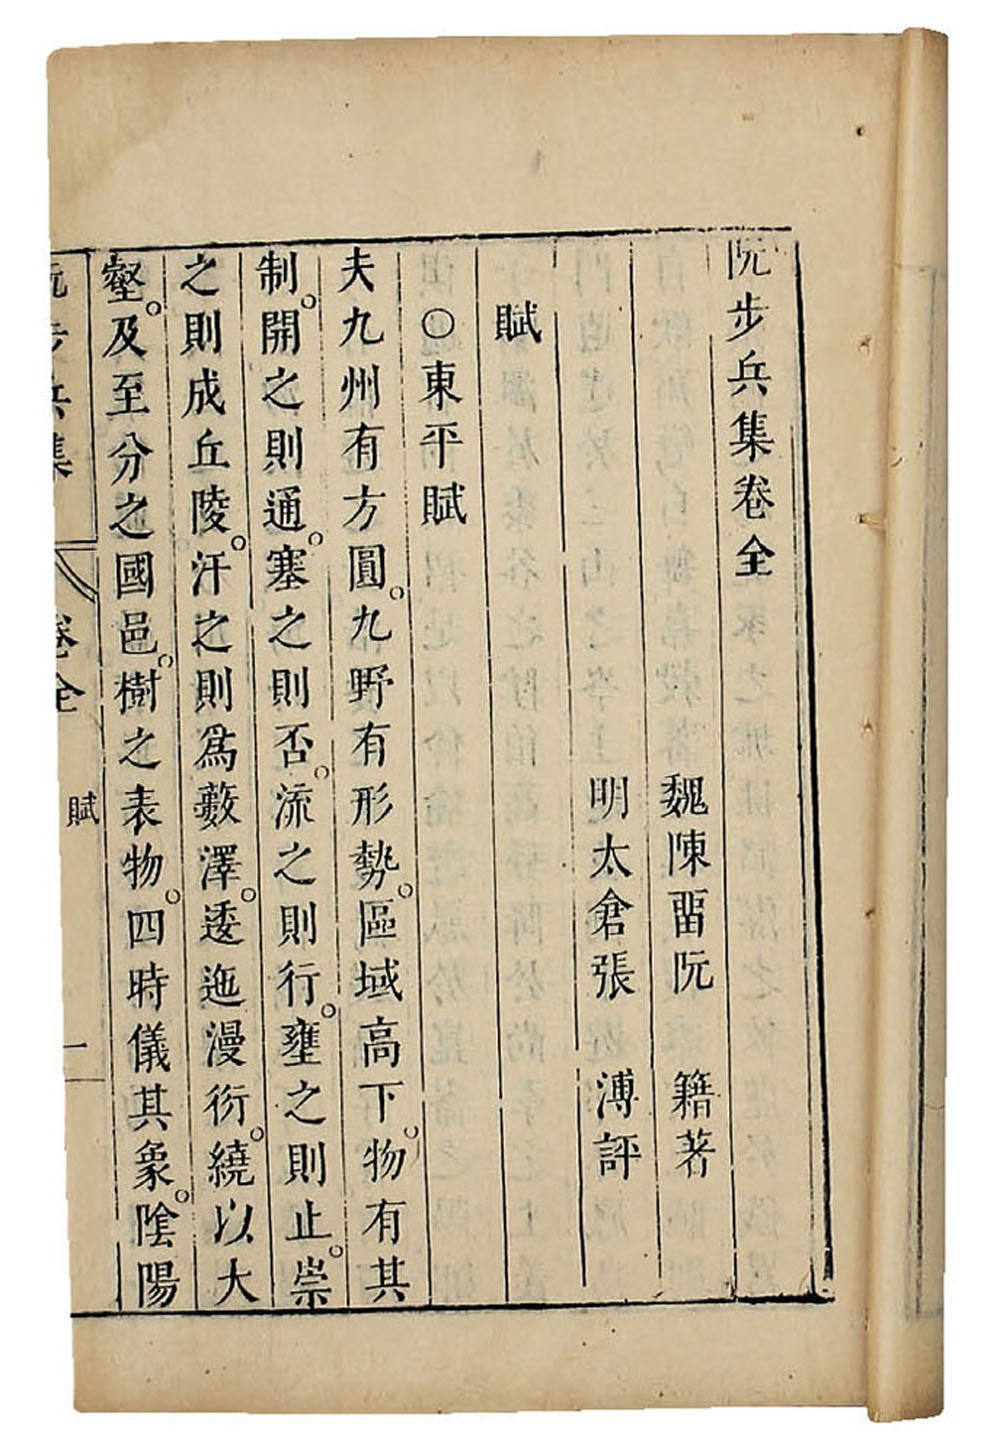 阮步兵集卷全
魏陳畱阮　籍著
明太倉張　溥評
賦
○東平賦
夫九州有方圓。九野有形勢。區域高下。物有其
制。開之則通。塞之則否。流之則行。壅之則止。崇
之則成丘陵。汙之則爲藪澤。逶迤漫衍。繞以大
壑。及至分之國邑。樹之表物。四時儀其象。陰陽
阮步兵集 卷全 賦 一